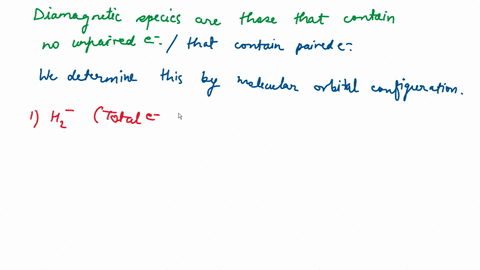 Diamagnetic species are those that contain
no unpaired e-. / that contain paired e-.
We determine this by molecular orbital configuration.
1) H₂⁻ (Total e-